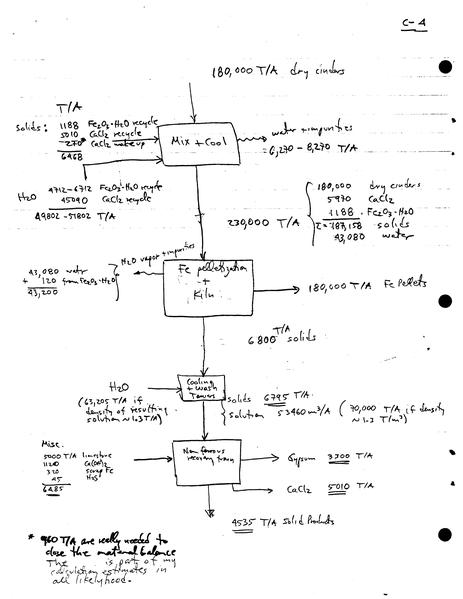 C-4
180,000 T/A dry cinders
T/A
Solids: 1188 Fe2O3·H2O recycle
5010 CaCl2 recycle
270* CaCl2 make up
6468
Mix + Cool
water + impurities
= 6,270 - 8,270 T/A
H2O 4712-6712 Fe2O3·H2O recycle
45090 CaCl2 recycle
49802-51802 T/A
230,000 T/A
180,000 dry cinders
5970 CaCl2
1188 Fe2O3·H2O
Σ=187,158 solids
43,080 water
H2O vapor + impurities
43,080 water
+ 120 from Fe2O3·H2O
43,200
Fe pelletization
+
Kiln
180,000 T/A Fe Pellets
T/A
6800 solids
H2O
(63,205 T/A if
density of resulting
solution ~1.3 T/A)
Cooling
+ Wash
Towers
solids 6795 T/A
solution 53460 m3/A (70,000 T/A if density
~1.3 T/m3)
Misc.
5000 T/A limestone
1120 Ca(OH)2
320 scrap Fe
45 H2S
6485
Non ferrous
recovery train
Gypsum 3300 T/A
CaCl2 5010 T/A
4535 T/A Solid Products
* 960 T/A are really needed to
close the material balance
The is part of my
calculation estimates in
all likelihood.